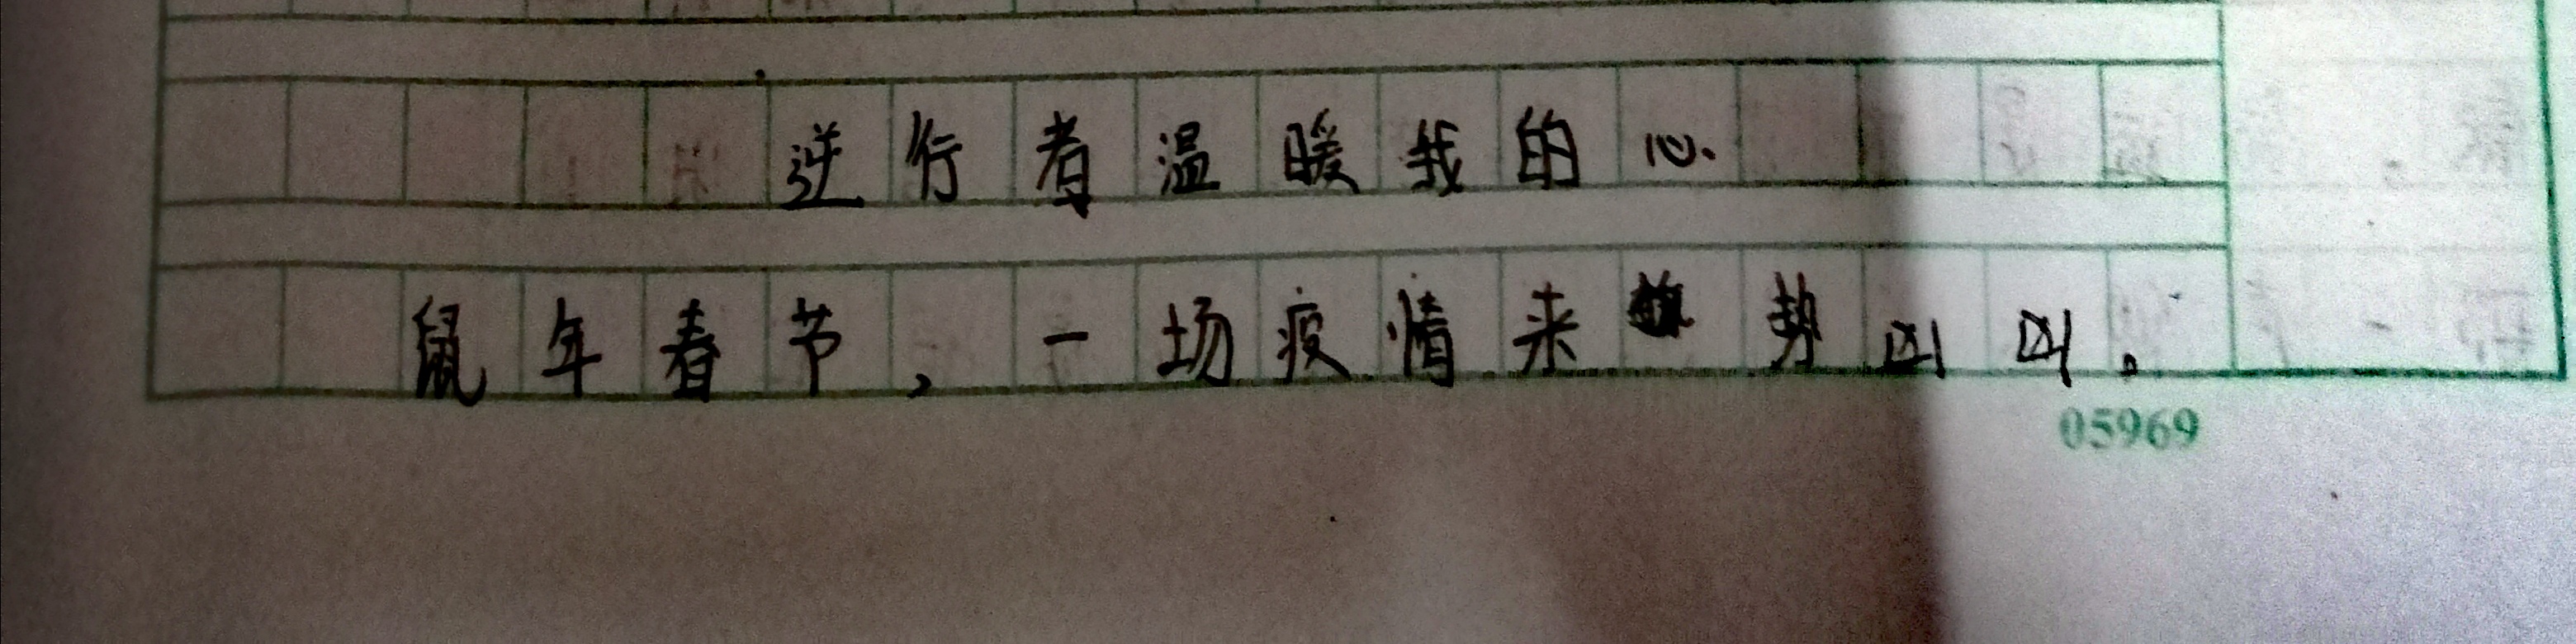 逆行者温暖我的心
鼠年春节，一场疫情来势凶凶。
05969